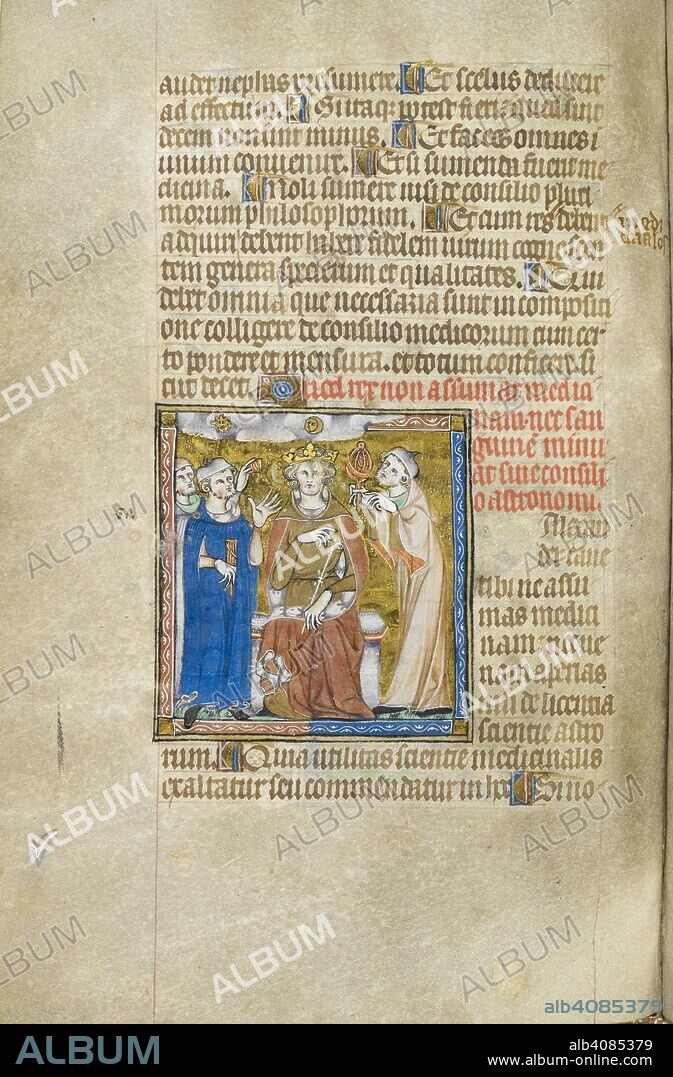 audet nephas presumere. Et scelus deducere
ad effectum. Si itaque potest fieri
decem non sint minus. Et facies omnes i
unum convenire. Et si sumenda fuerit me
dicina. Noli sumere nisi de consilio pluri
morum philosophorum. Et cum
habere fidelem virum
tem genera specierum et qualitates. Qui
debet omnia que necessaria sunt in compositi
one colligere de consilio medicorum cum cer
to pondere et mensura. et totum conficere. si
cut decet. rex non assumat medici
nam. nec san
guinem minu
at sine consili
o astronomi.
Alexan
der cave
tibi ne assu
mas medici
nam
nam aperias
nisi de licentia
scientie astro
rum. Quia utilitas scientie medicinalis
exaltatur seu commendatur in hoc Si no
ALBUM
alb4085379
ALBUM
alb4085379
www.album-online.com